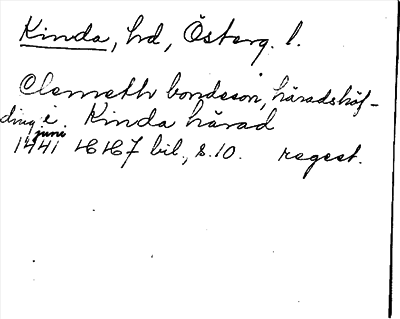 Kinda, hd, Österg. l.
Clemeth bondeson, häradshöf-
ding i Kinda härad
juni
1441 HH7 bil., s. 10. regest.